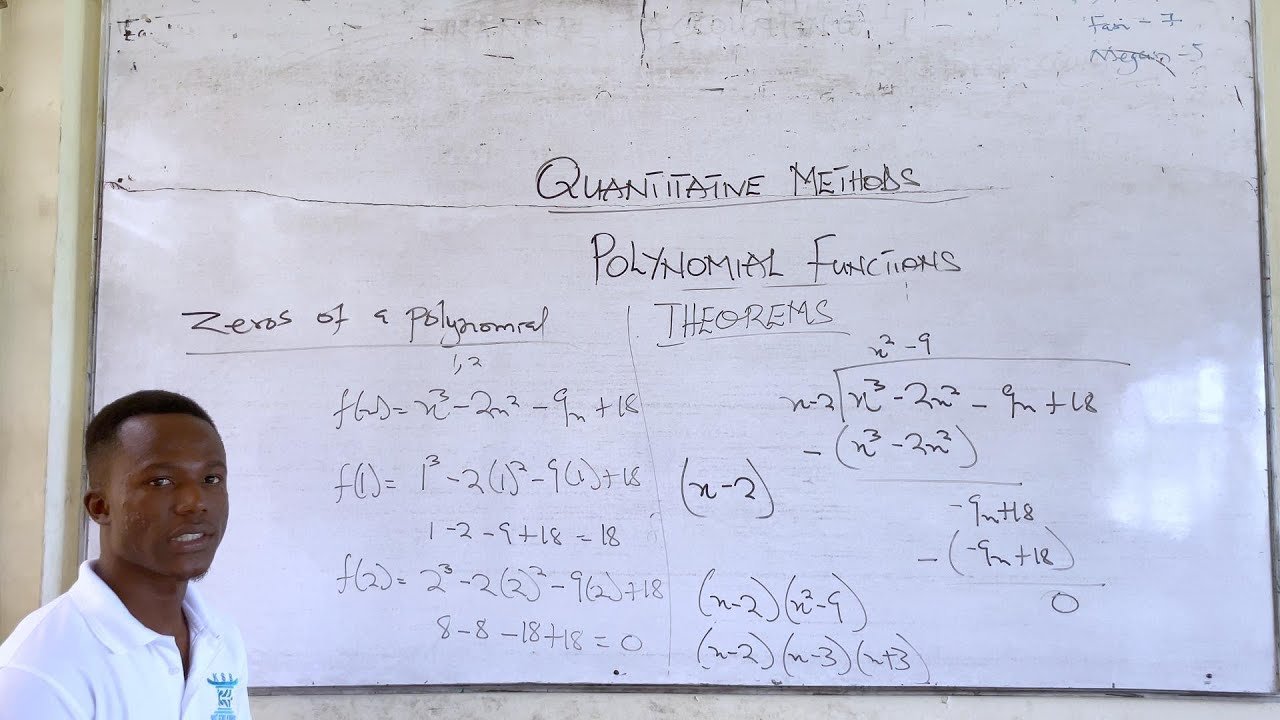 Fair - 7
QUANTITATIVE METHODS
POLYNOMIAL FUNCTIONS
Zeros of a polynomial
1, 2
f(x) = x³ - 2x² - 9x + 18
f(1) = 1³ - 2(1)² - 9(1) + 18
1 - 2 - 9 + 18 = 18
f(2) = 2³ - 2(2)² - 9(2) + 18
8 - 8 - 18 + 18 = 0
THEOREMS
x² - 9
x-2 x³ - 2x² - 9x + 18
- (x³ - 2x²)
(x - 2)
-9x + 18
- (-9x + 18)
0
(x-2)(x²-9)
(x-2)(x-3)(x+3)